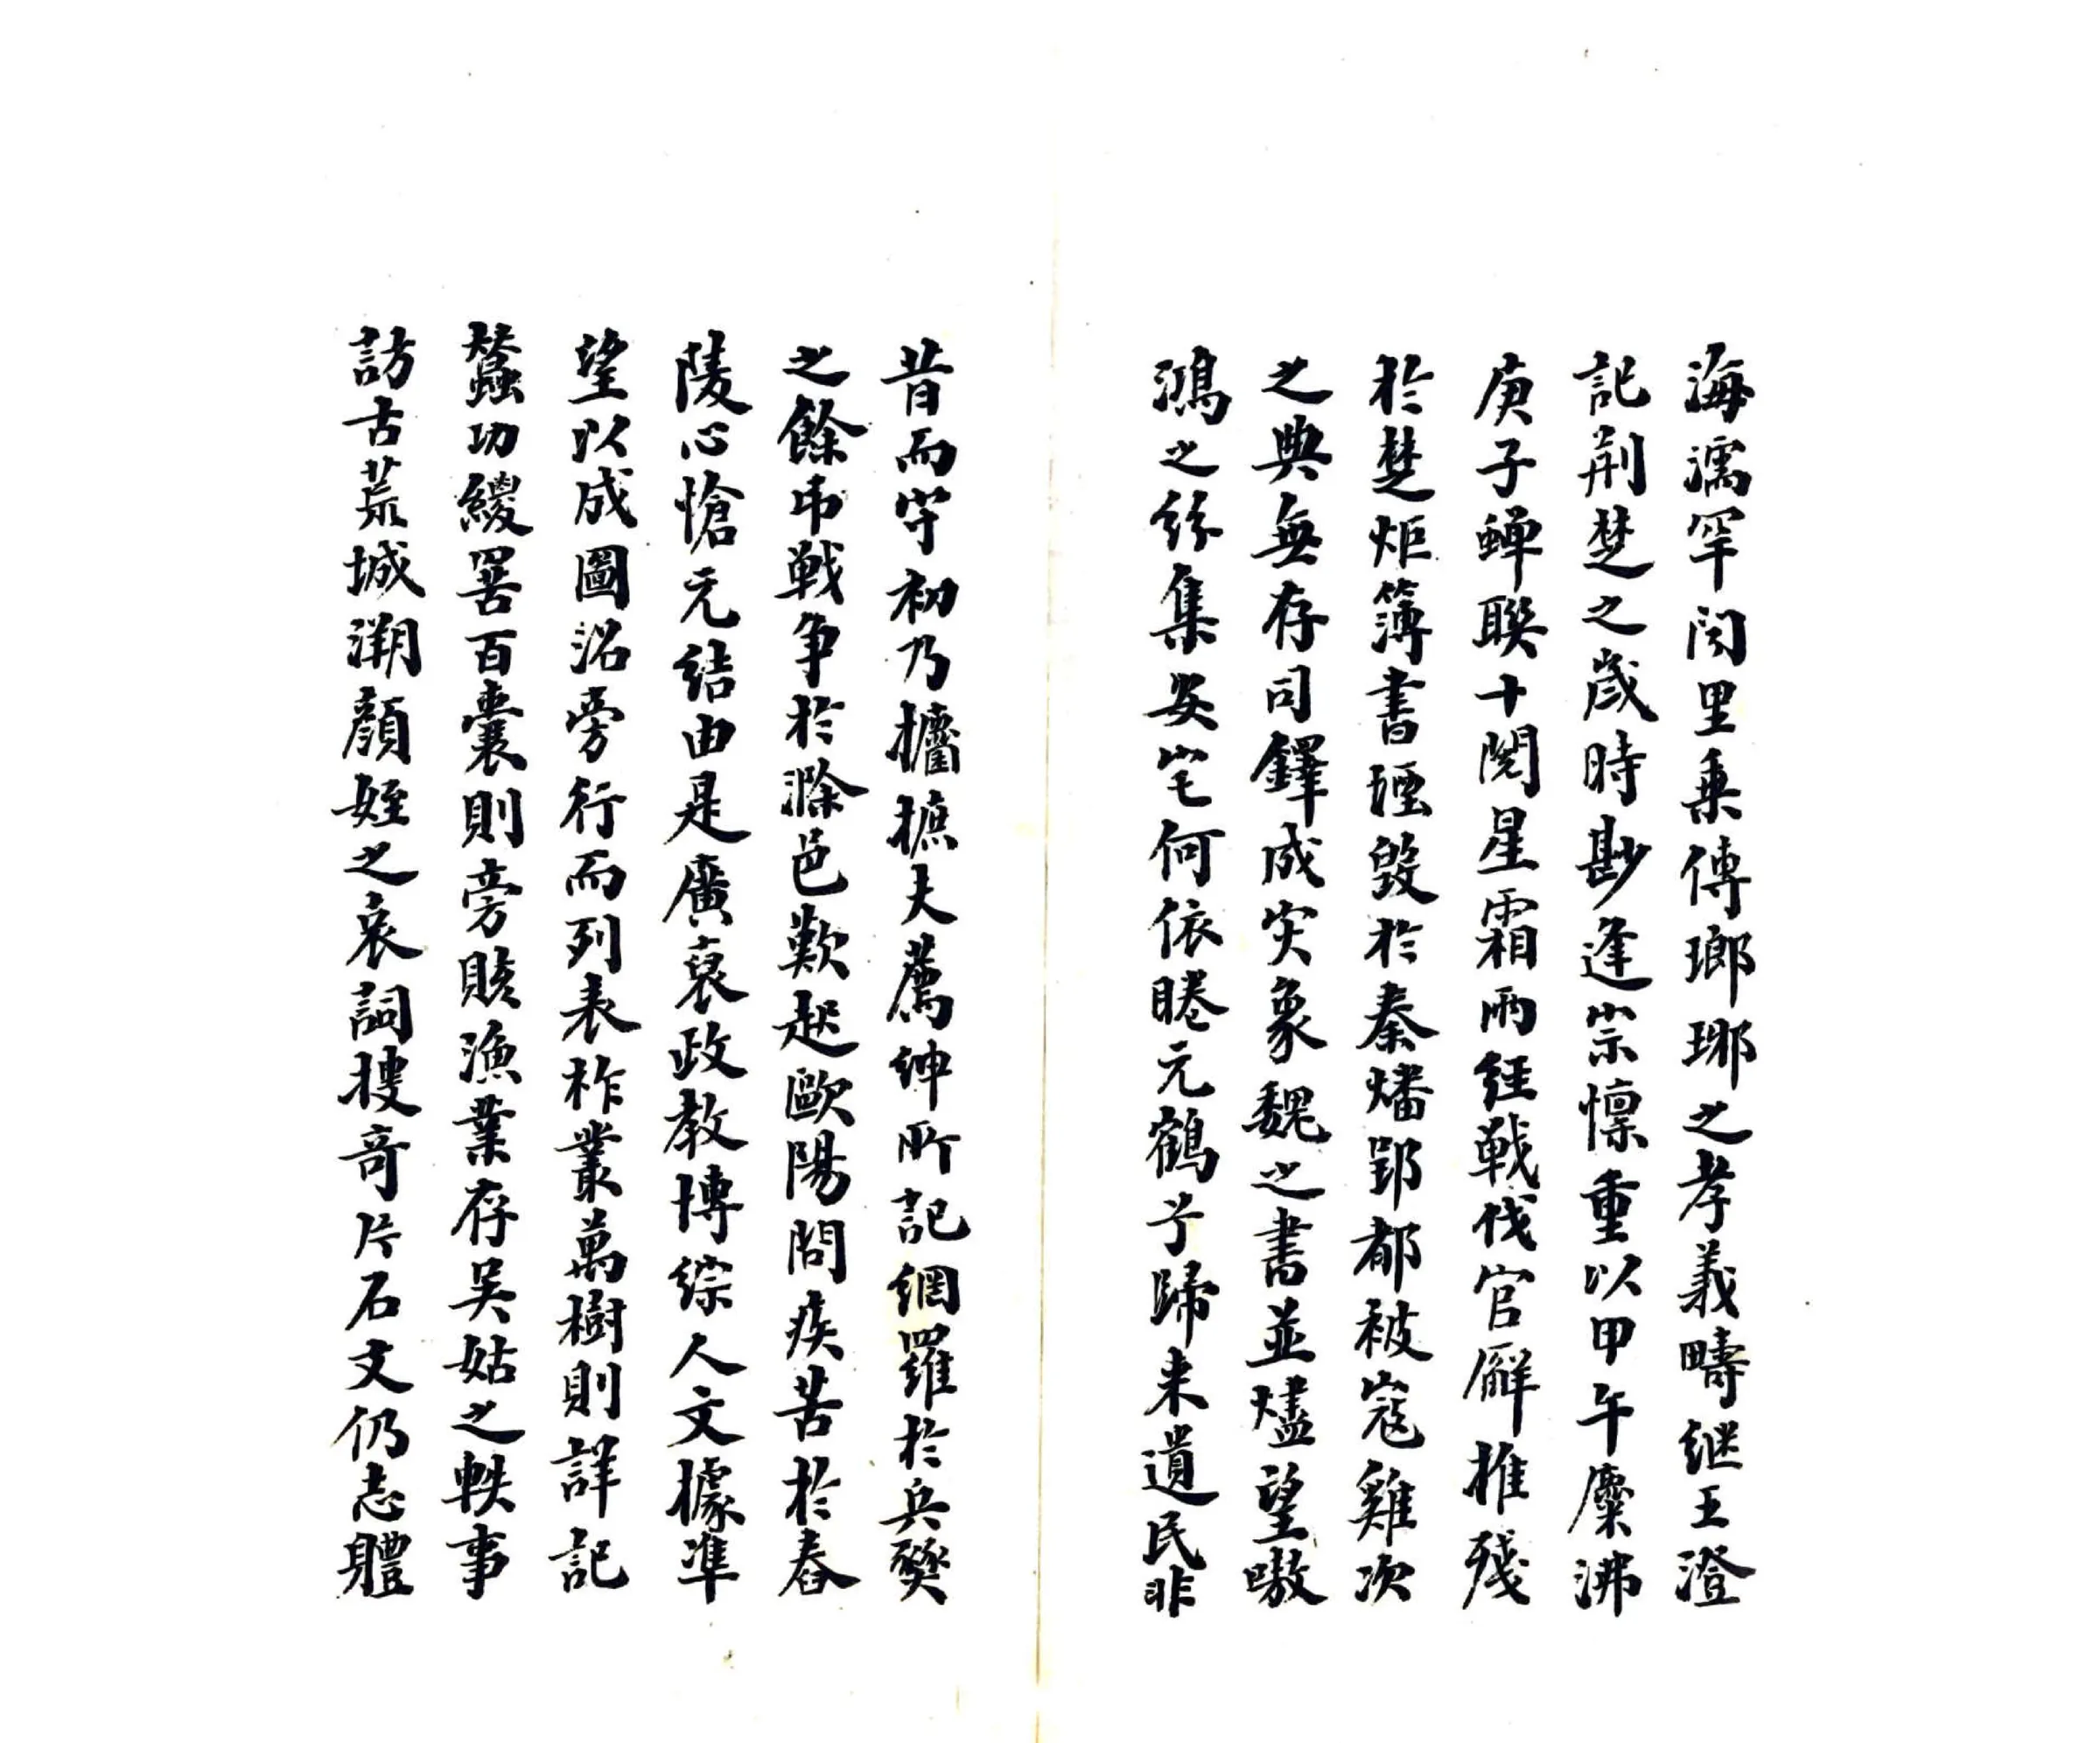 海濡罕閱里乘傳瑯琊之孝義疇继王澄
記荆楚之歲時尠逢崇懍重以甲午麋沸
庚子蟬聯十閱星霜兩經戦伐官廨摧殘
於楚炬簿書堙毀於秦燔郢都被寇雞次
之典無存司鐸成灾象魏之書並燼望嗷
鴻之紛集安宅何依睠元鶴兮歸来遺民非
昔而守初乃攟摭夫薦紳所記網羅於兵燹
之餘弔戦争於滁邑歎起歐陽問疾苦於舂
陵心愴元结由是廣裒政教博综人文據準
望以成圖沿旁行而列表柞叢萬樹則詳記
蠶功緵罟百囊則旁賅漁業存吴姑之軼事
訪古荒城溯顏姪之哀詞搜奇片石文仍志體